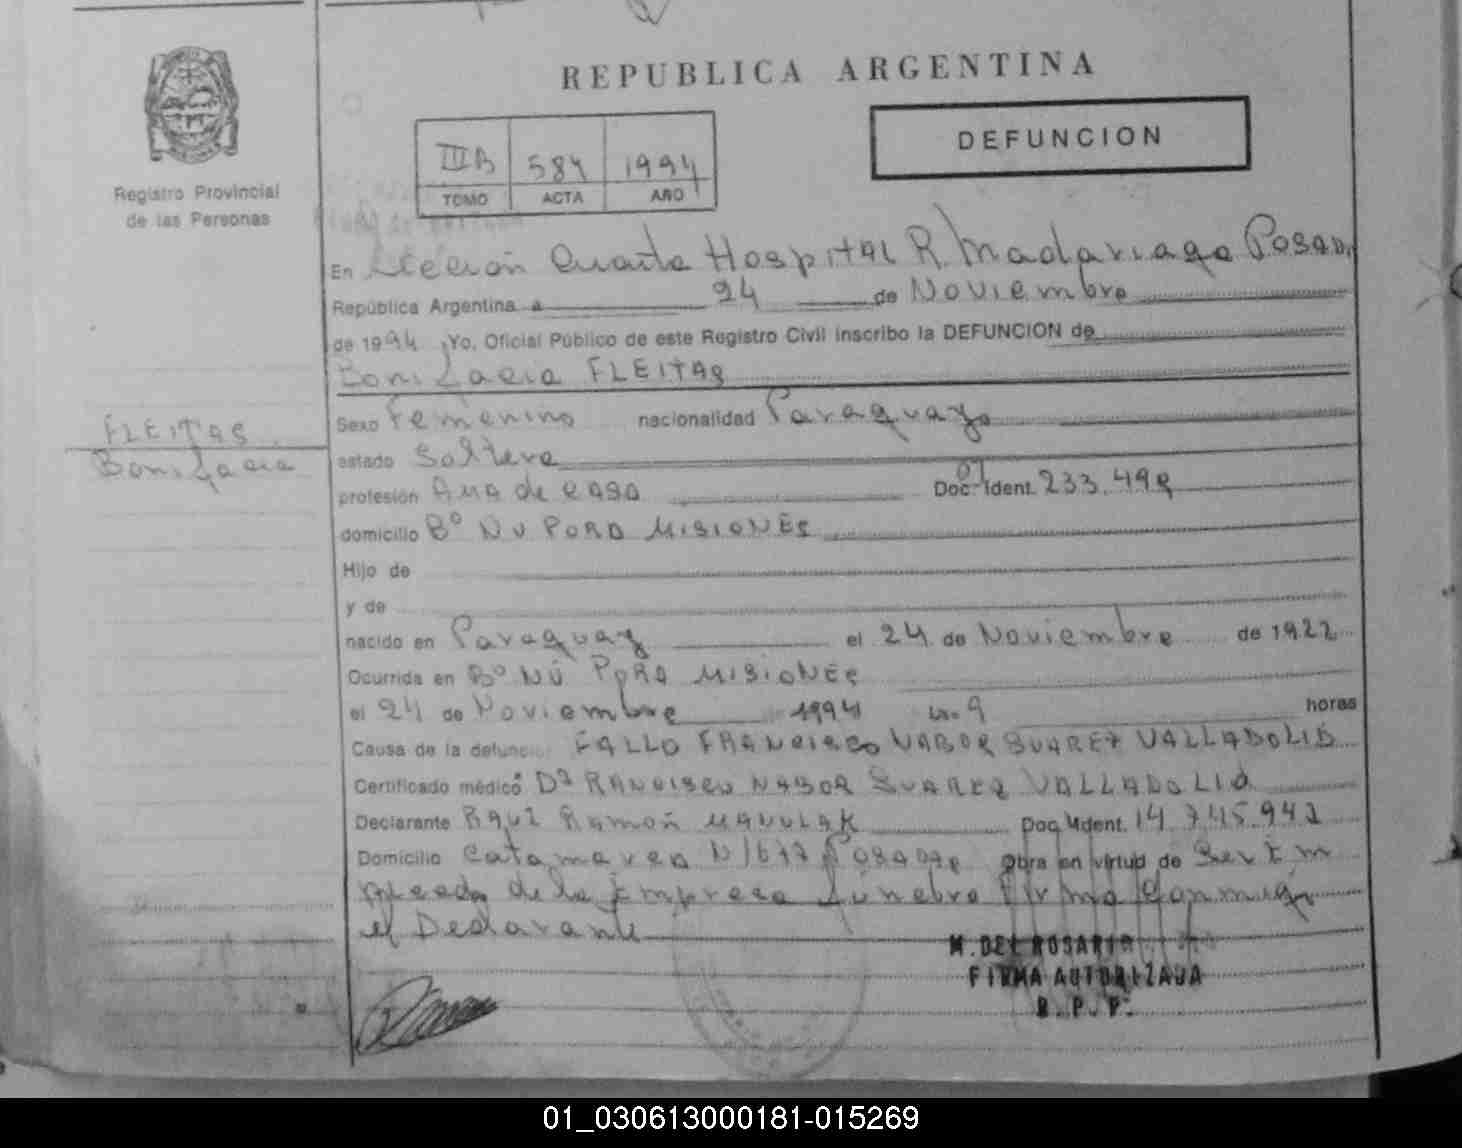 REPUBLICA ARGENTINA
DEFUNCION
IIIB 584 1994
TOMO ACTA AÑO
Registro Provincial
de las Personas
En Sección Cuarta Hospital R. Madariaga Posad.
República Argentina a 24 de Noviembre
de 1994 Yo, Oficial Público de este Registro Civil inscribo la DEFUNCION de
Bonifacia FLEITAS
FLEITAS
Bonifacia
Sexo Femenino nacionalidad Paraguaya
estado Soltera
profesión Ama de casa Doc. Ident. 233.498
domicilio Bº ÑU PORA MISIONES
Hijo de
y de
nacido en Paraguay el 24 de Noviembre de 1922
Ocurrida en Bº ÑU PORA MISIONES
el 24 de Noviembre 1994 9 horas
Causa de la defunción FALLO FRANCISCO NABOR SUAREZ VALLADOLID
Certificado médico NABOR SUAREZ VALLADOLID
Declarante Raul Ramon Doc. Ident. 14.745.942
Domicilio Catamarca N 1677 Posadas Obra en virtud de Ser Em
pleado de la Empresa Funebre Firma Conmigo
el Declarante
M. DEL ROSARIO
FIRMA AUTORIZADA
R. P. P.
01_030613000181-015269